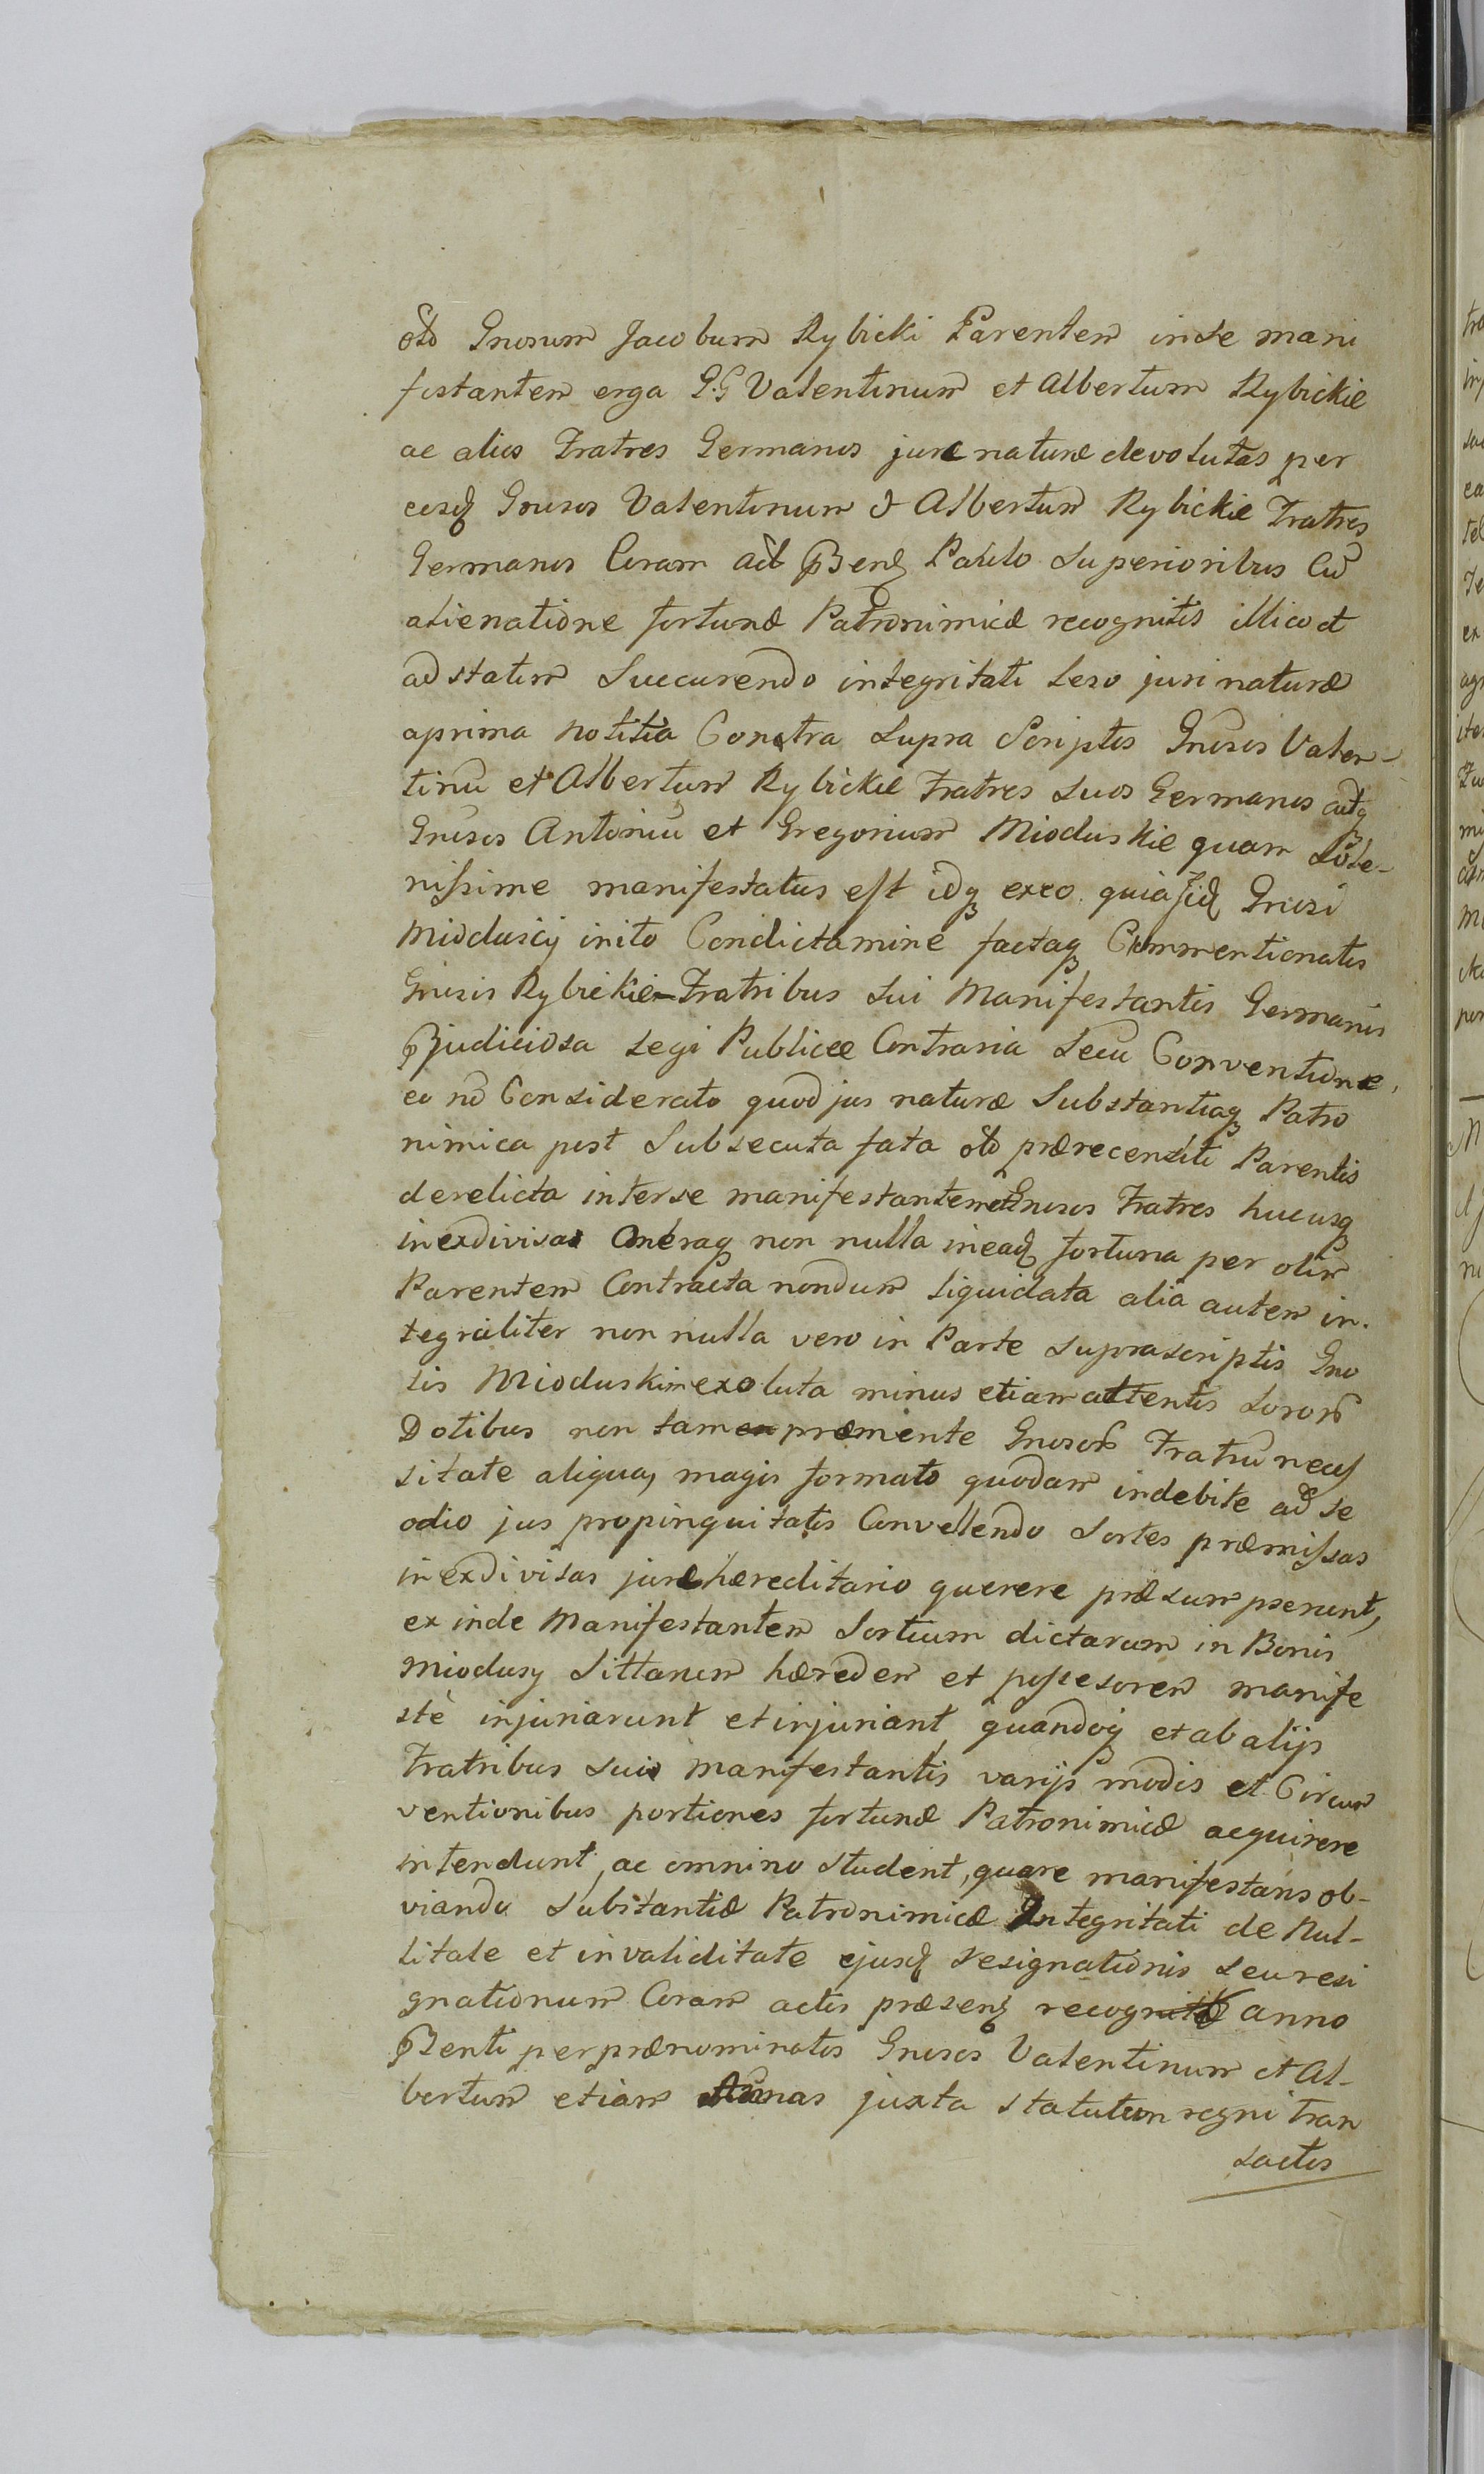 olo Gnosum Jacobum Rybicki Parentem in se mani
festantem erga G.G Valentinum et Albertum Rybickie
ac alios Fratres Germanos jure naturæ devolutas per
eosq Gnosos Valentinum & Albertum Rybickie Fratres
Germanos Coram act p̃senq Paulo Superioribus Cũ
alienatione fortunæ Patronimicæ recognitis illico et
ad statim Succurendo integritati Leso juri naturæ
a prima notitia Contra Supra Scriptos Gnosos Valen-
tinũ et Albertum Rybickie Fratres Suos Germanos atq
Gnosos Antoniũ et Gregorium Mioduskie quam Sole-
nissime manifestatus est idq ex eo quia jidq Gnosi
Mioduscy inito Condictamine factaq Cummentionatis
Gnosis Rybickie Fratribus Sui Manifestantis Germanis
p̃judiciosa Legi Publicæ Contraria Secũ Conventione,
eo nõ Considerato quod jus naturæ Substantiaq Patro
nimica post Subsecuta fata olo prærecensiti Parentis
derelicta inter se manifestantem et Gnosos Fratres hucusq
inexdivisa Oneraq non nulla in eadq fortuna per olim
Parentem Contracta nondum liquidata alia autem in-
tegraliter non nulla vero in Parte suprascriptis Gno
sis Mioduskim exoluta minus etiam attentis Soror
Dotibus non tamen præmente Gnosor Fratrũ necess
sitate aliqua, magis formato quodam indebite ad se
odio jus propinquitatis Convellendo Sortes præmissas
inexdivisas jure hæreditario querere præsumpserunt,
ex inde Manifestantem Sortium dictarum in Bonis
Miodusy Littanem hæredem et possesorem manife
stè injuriarunt et injuriant, quandoq et ab alijs
Fratribus Suis Manifestantis varijs modis et Circum
ventionibus portiones fortunæ Patronimicæ acquirere
intendunt, ac omnino student, quare manifestans ob-
viando Substantiæ Patronimicæ Integritati de Nul-
litate et invaliditate ejusq resignationis seu resi
gnationum Coram actis præsenq recognitæ anno
p̃senti per prænominatos Gnosos Valentinum et Al-
bertum etiam juxta statutum regni tran
sactis